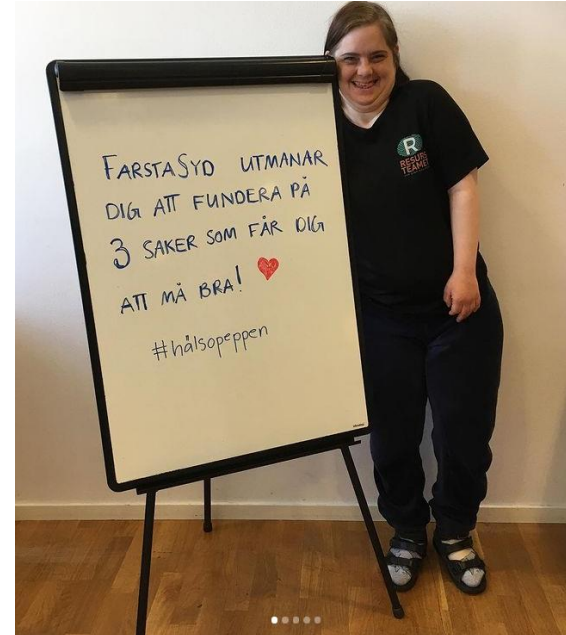 FARSTASYD UTMANAR
DIG ATT FUNDERA PÅ
3 SAKER SOM FÅR DIG
ATT MÅ BRA!
#hälsopeppen
R
RESURS
TEAMET